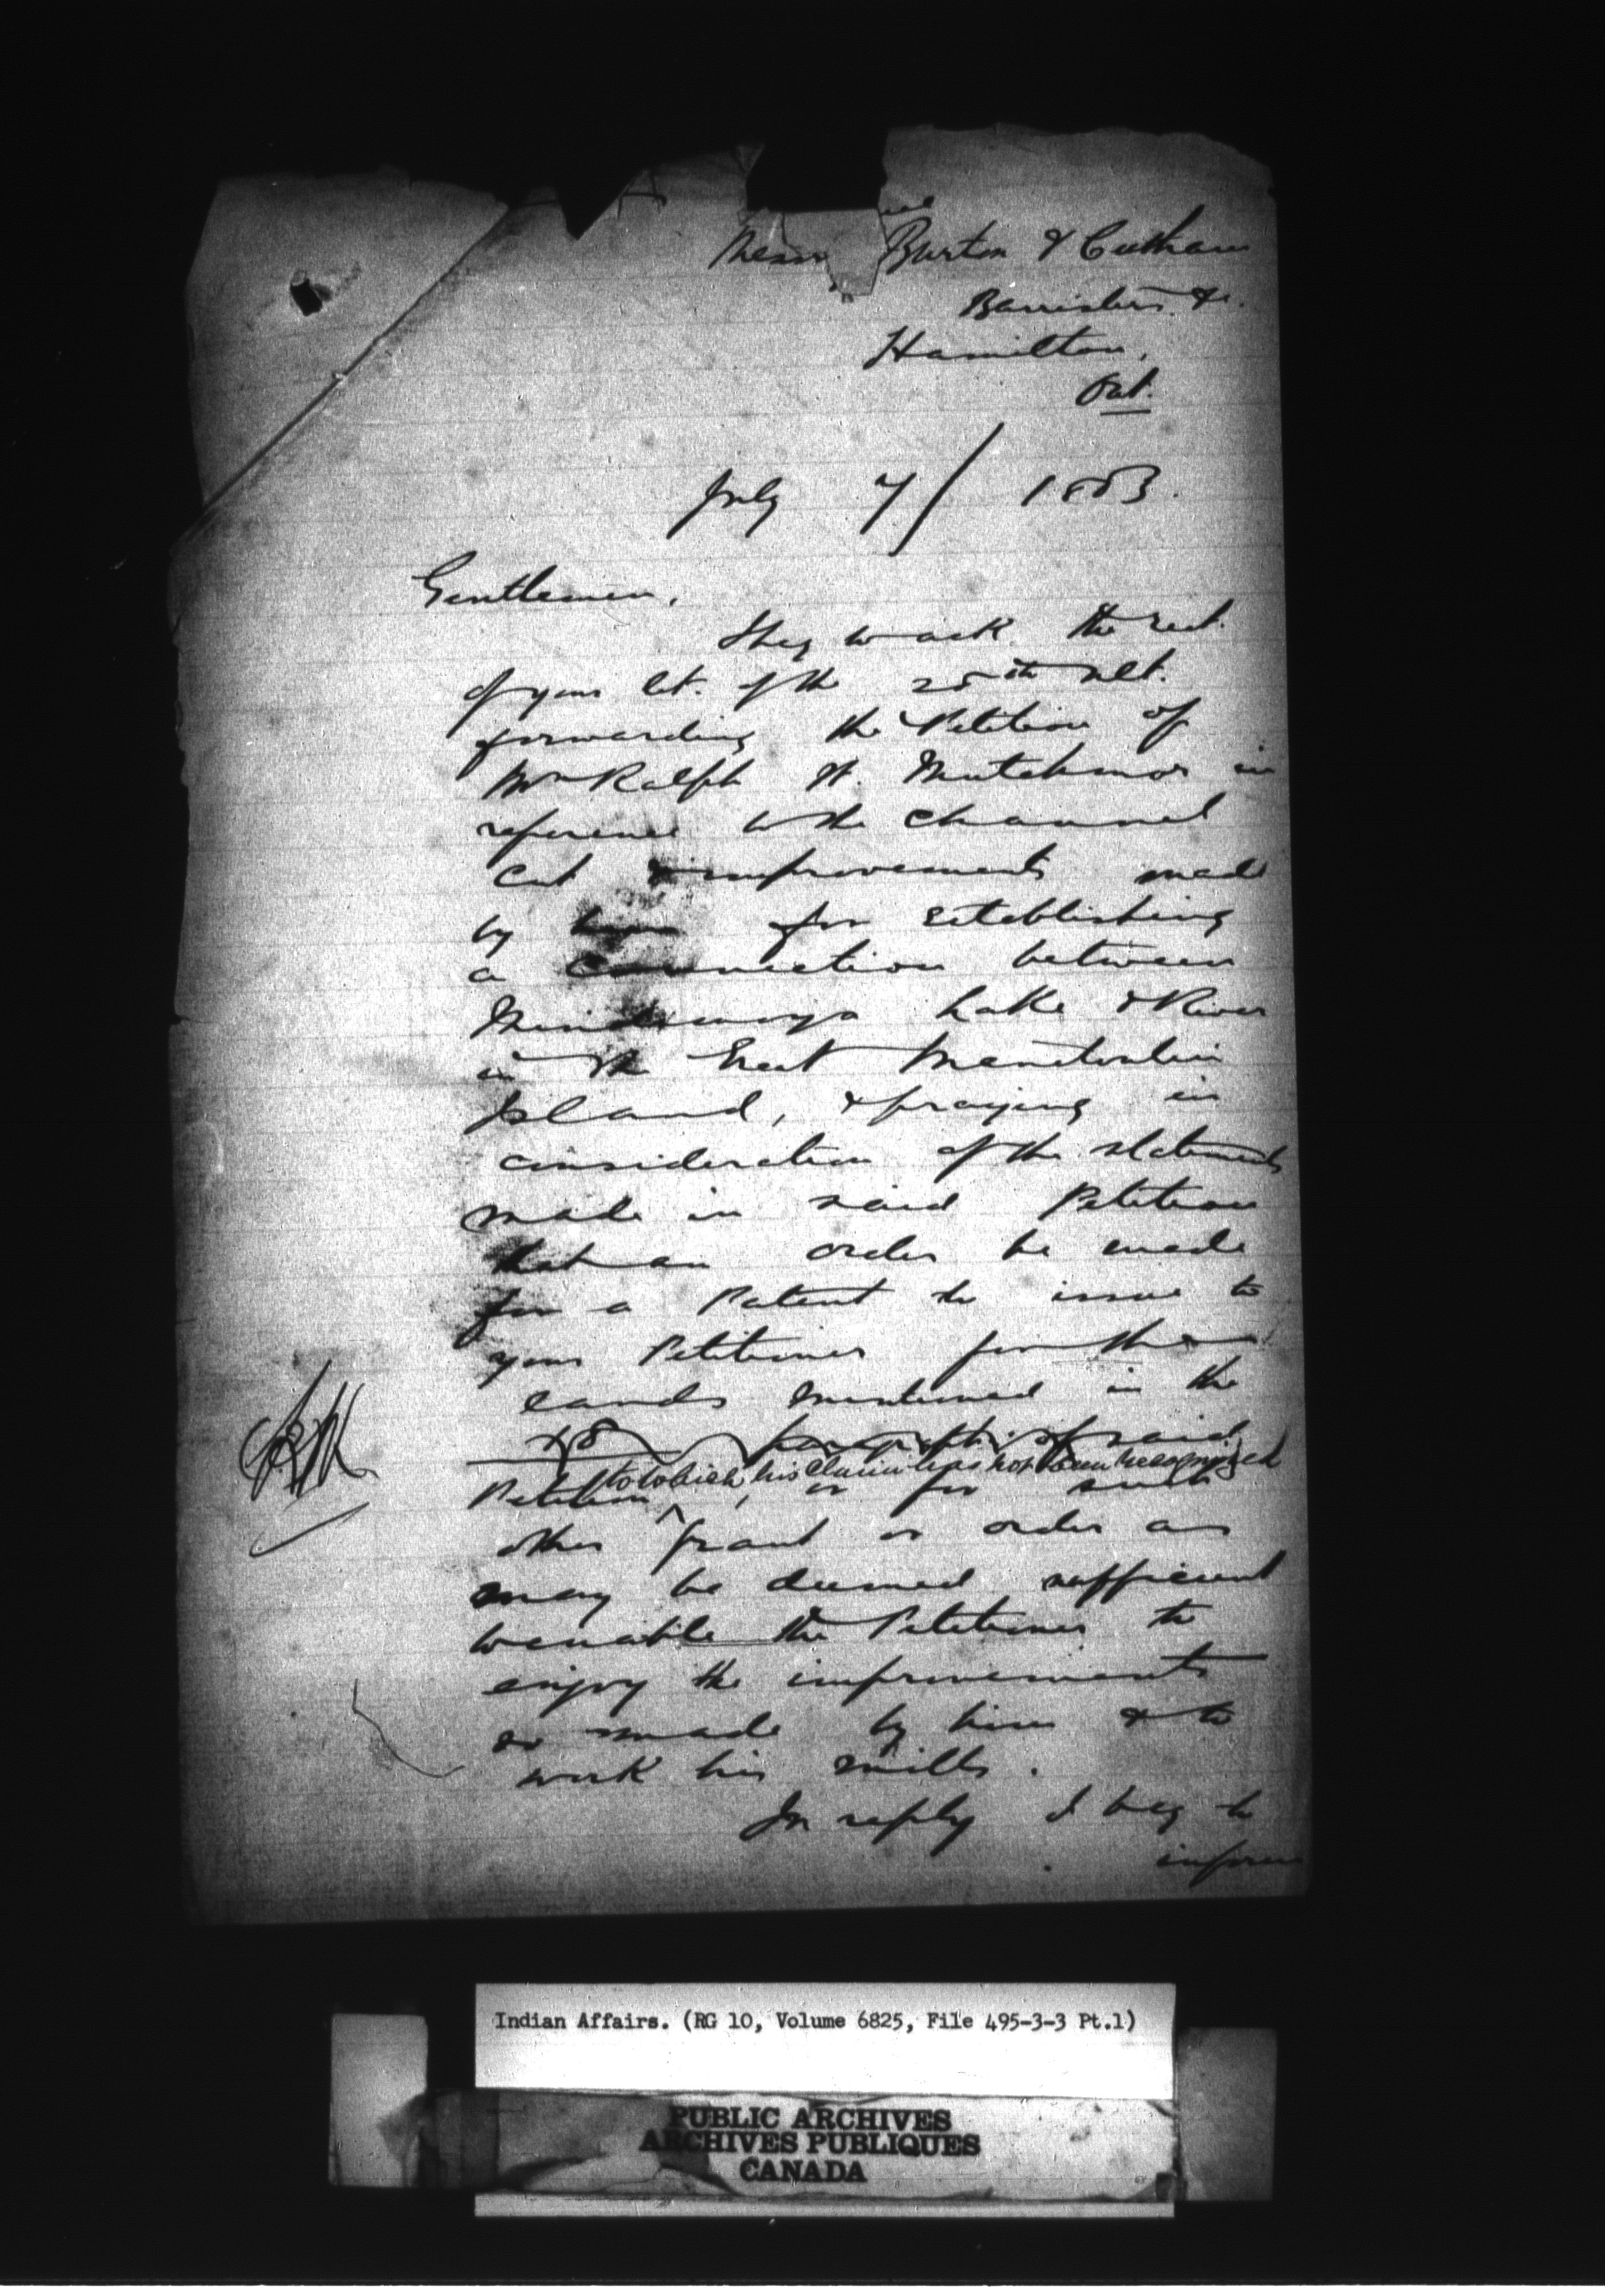 Messrs Burton & Culham
Barristers &c.
Hamilton,
Ont.
July 7/ 1883.
Gentlemen,
I beg to ack. the rect.
of your let. of the 25th ult.
forwarding the Petition of
Mr Ralph H. Mutchmor in
reference to the channel
cut & improvements made
by him for establishing
a connection between
Mindemoya Lake & River
in the Great Manitoulin
Island, & praying in
consideration of the statements
made in said Petition
that an order be made
for a Patent to issue to
your Petitioner for the
lands mentioned in the
paragraph of said
to which his claim has not been recognized
Petition, or for such
other grant or order as
may be deemed sufficient
to enable the Petitioner to
enjoy the improvements
so made by him & to
work his mills.
In reply I beg to
inform
Indian Affairs. (RG 10, Volume 6825, File 495-3-3 Pt.1)
PUBLIC ARCHIVES
ARCHIVES PUBLIQUES
CANADA